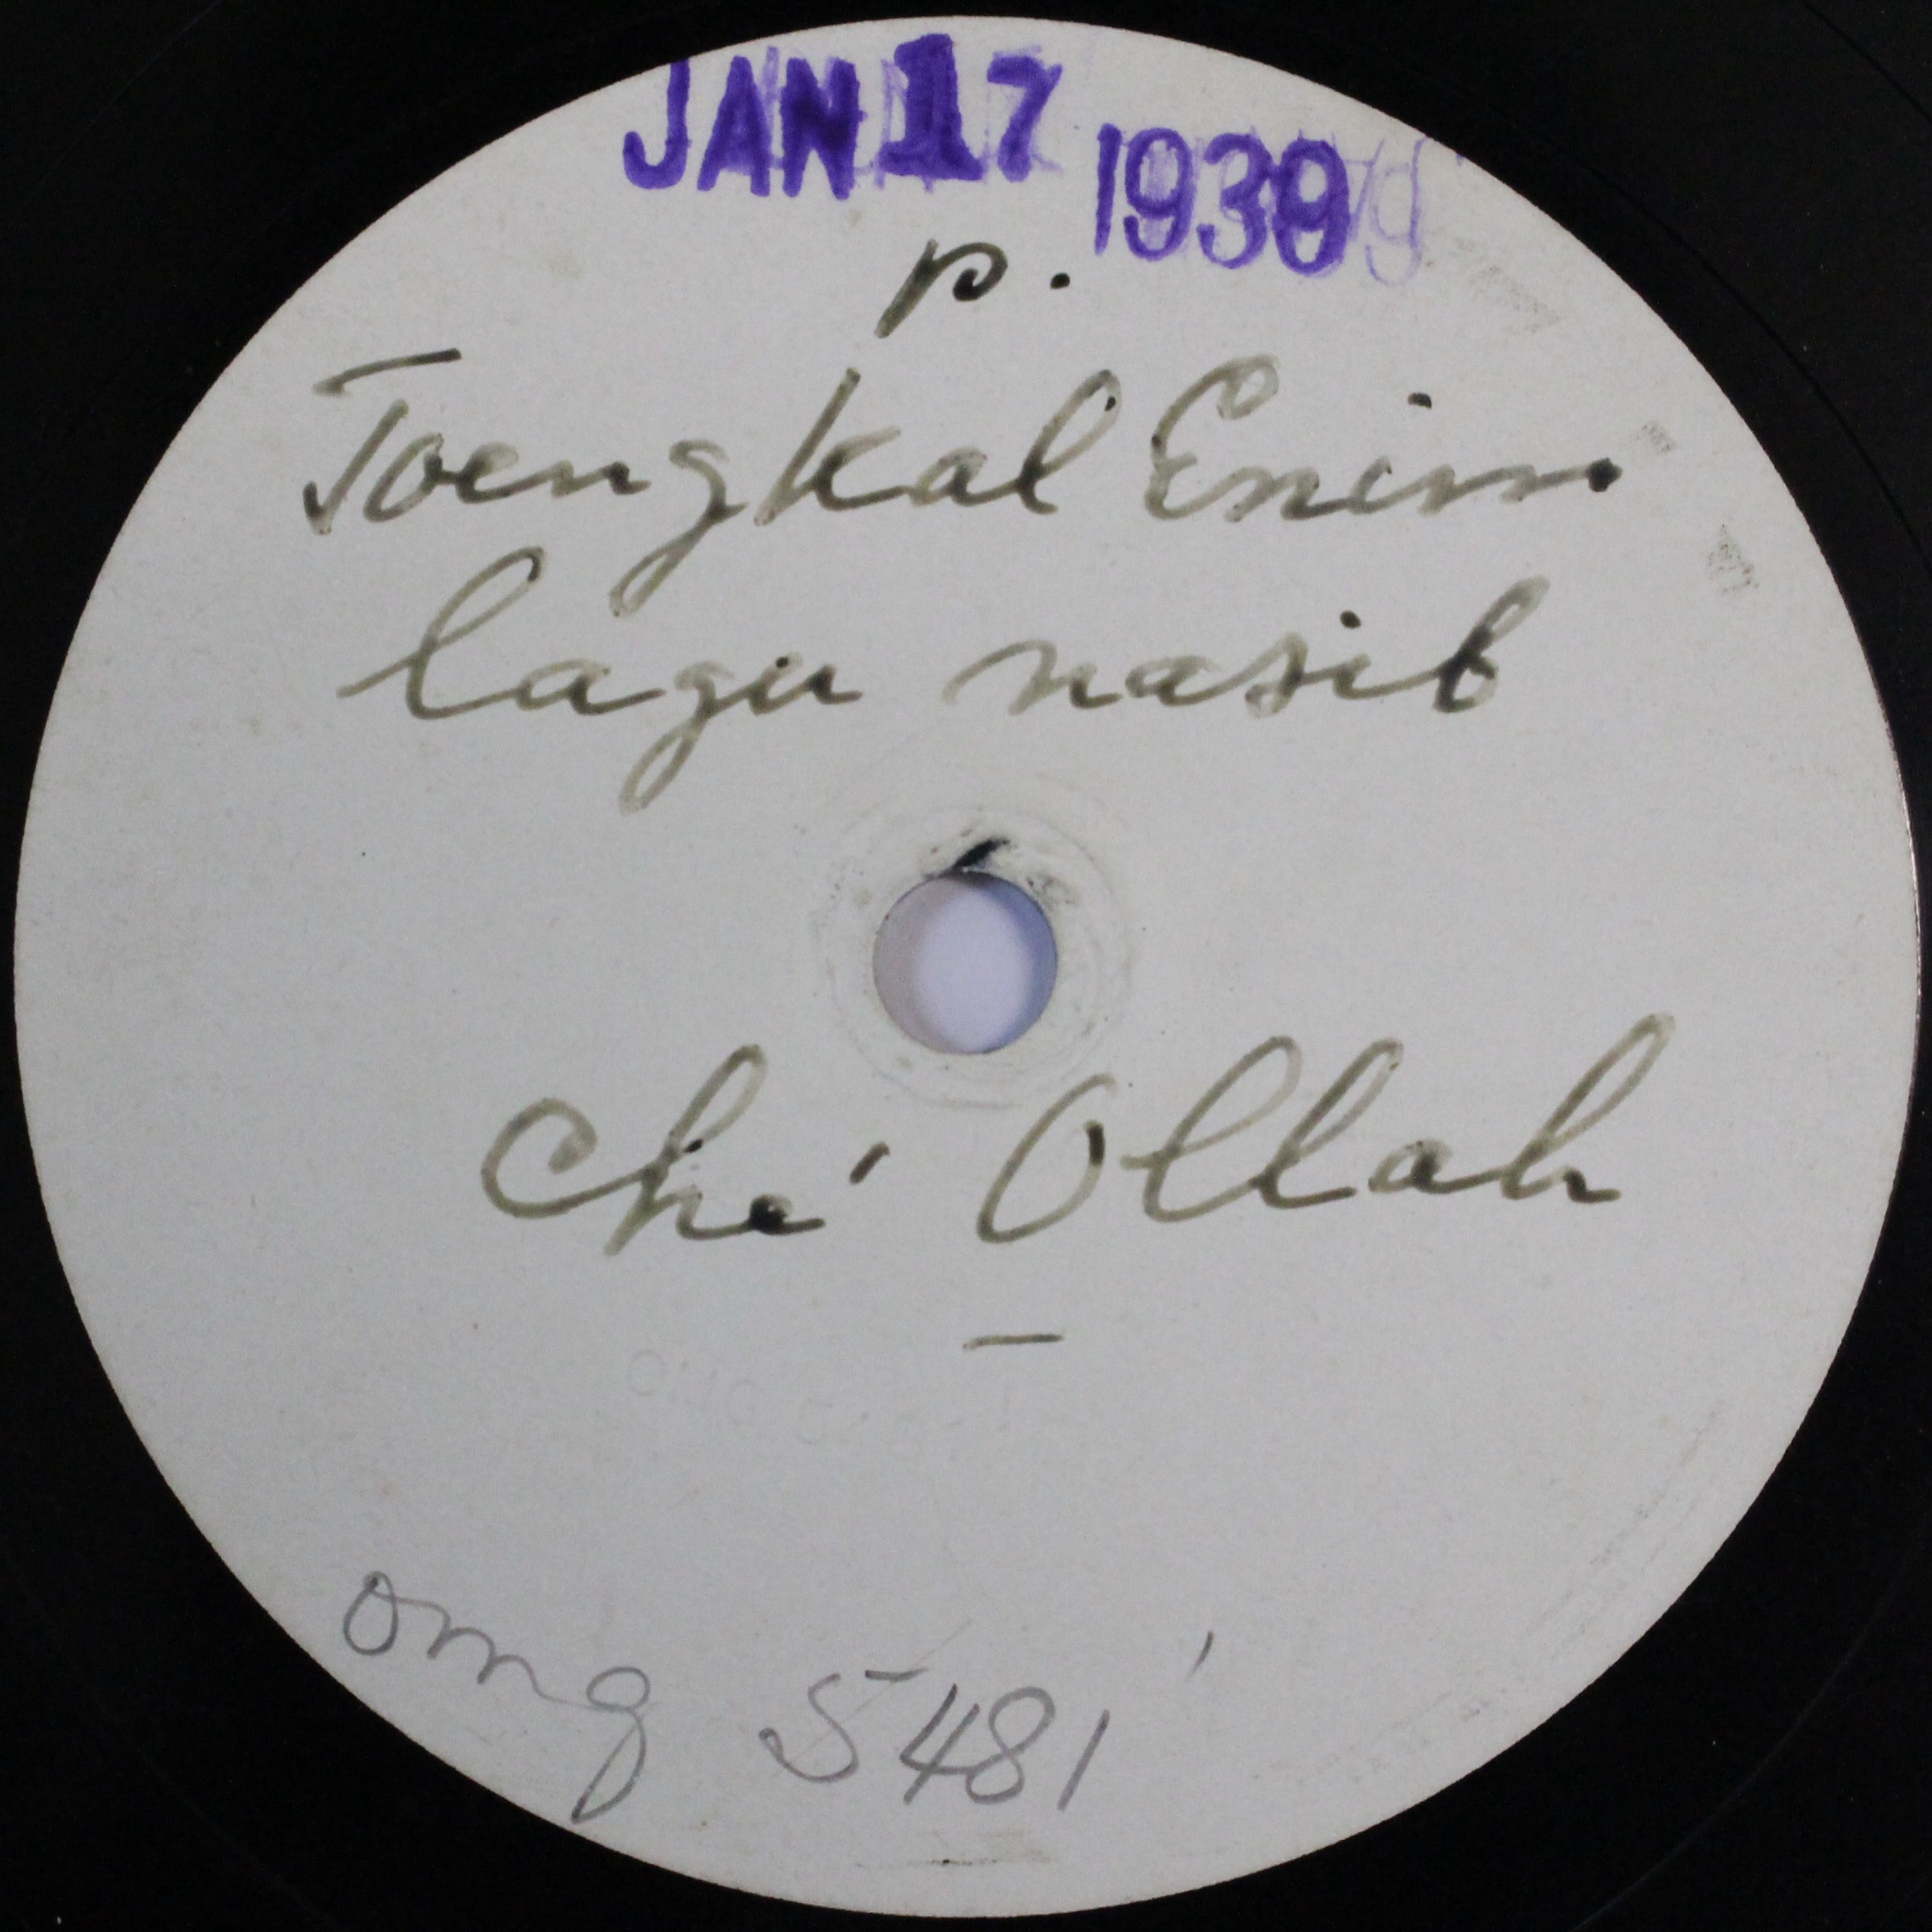 JAN 17 1939
p.
Toengkal Enim
lagu nasib
Che' Ollah
omg 5481